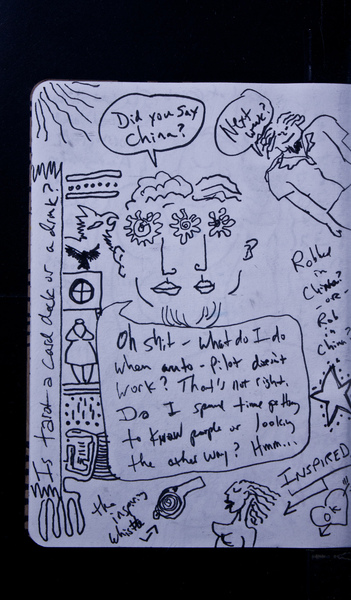 Did you say
China?
Next
week?
Is tarot a card deck or a drink?
Robbed
in
China?
- or -
Rob
in
China?
Oh shit - What do I do
when auto-pilot doesn't
work? That's not right.
Do I spend time getting
to know people or looking
the other way? Hmm...
INSPIRED
OK
the
inspiring
whistle